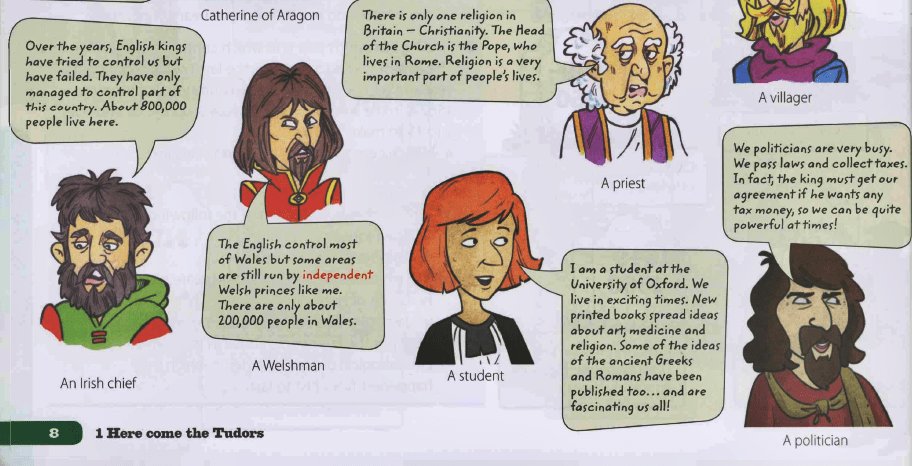 Catherine of Aragon
There is only one religion in
Britain – Christianity. The Head
of the Church is the Pope, who
lives in Rome. Religion is a very
important part of people's lives.
A villager
Over the years, English kings
have tried to control us but
have failed. They have only
managed to control part of
this country. About 800,000
people live here.
We politicians are very busy.
We pass laws and collect taxes.
In fact, the king must get our
agreement if he wants any
tax money, so we can be quite
powerful at times!
A priest
The English control most
of Wales but some areas
are still run by independent
Welsh princes like me.
There are only about
200,000 people in Wales.
I am a student at the
University of Oxford. We
live in exciting times. New
printed books spread ideas
about art, medicine and
religion. Some of the ideas
of the ancient Greeks
and Romans have been
published too... and are
fascinating us all!
An Irish chief
A Welshman
A student
A politician
8 1 Here come the Tudors